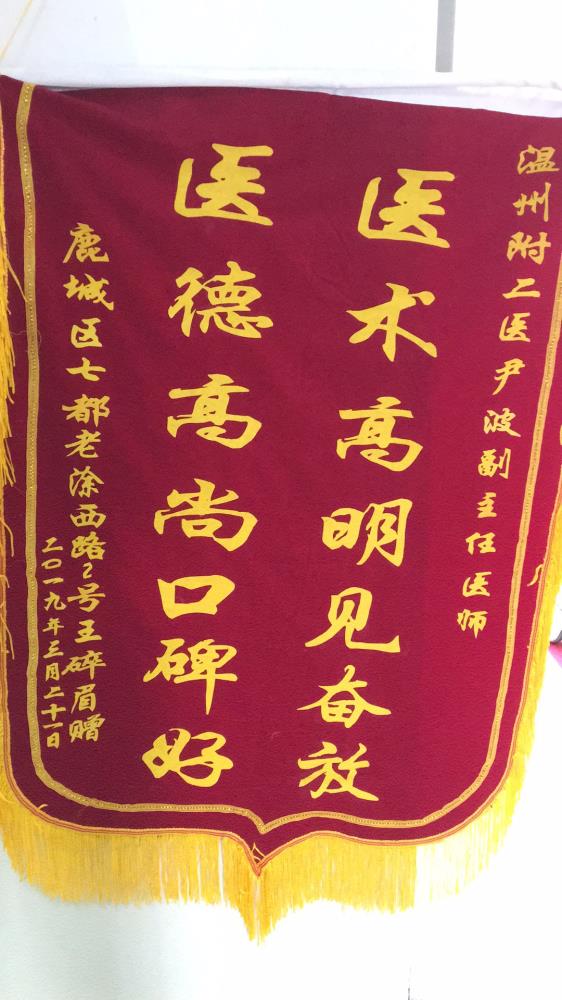 温州附二医尹波副主任医师
医术高明见奋放
医德高尚口碑好
鹿城区七都老涂西路2号王碎眉赠
二〇一九年三月二十一日